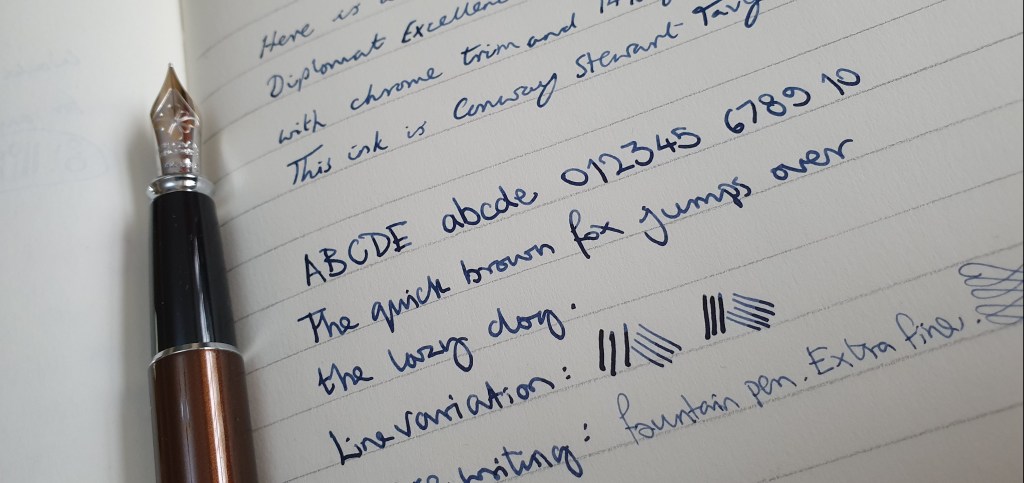 Here is
Diplomat Excellence
with chrome trim and 14k
This ink is Conway Stewart Tavy
ABCDE abcde 012345 6789 10
The quick brown fox jumps over
the lazy dog.
Line variation:
writing: fountain pen. Extra fine.